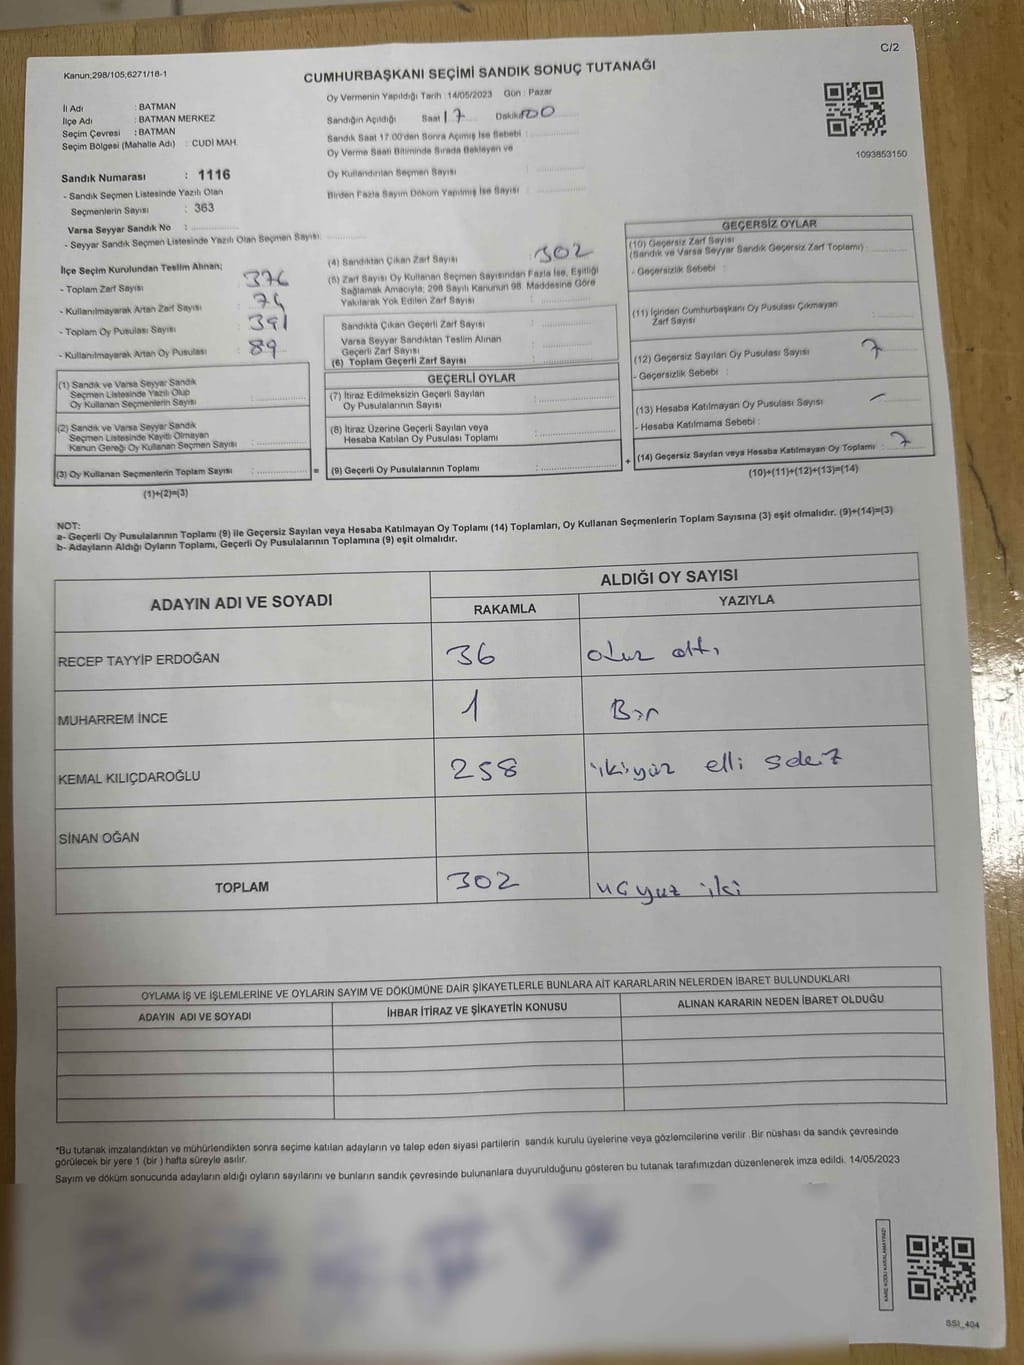 C/2
Kanun;298/105,6271/18-1
CUMHURBAŞKANI SEÇİMİ SANDIK SONUÇ TUTANAĞI
İl Adı : BATMAN
İlçe Adı : BATMAN MERKEZ
Seçim Çevresi : BATMAN
Seçim Bölgesi (Mahalle Adı) : CUDİ MAH.
Sandık Numarası : 1116
- Sandık Seçmen Listesinde Yazılı Olan
Seçmenlerin Sayısı : 363
Varsa Seyyar Sandık No :
- Seyyar Sandık Seçmen Listesinde Yazılı Olan Seçmen Sayısı:
Oy Vermenin Yapıldığı Tarih : 14/05/2023 Gün : Pazar
Sandığın Açıldığı Saat 17 Dakika 00
Sandık Saat 17:00'den Sonra Açımış İse Sebebi :
Oy Verme Saati Bitiminde Sırada Bekleyen ve
Oy Kullandırılan Seçmen Sayısı
Birden Fazla Sayım Döküm Yapılmış İse Sayısı :
1093853150
İlçe Seçim Kurulundan Teslim Alınan;
- Toplam Zarf Sayısı : 376
- Kullanılmayarak Artan Zarf Sayısı : 74
- Toplam Oy Pusulası Sayısı : 391
- Kullanılmayarak Artan Oy Pusulası : 89
(1) Sandık ve Varsa Seyyar Sandık
Seçmen Listesinde Yazılı Olup
Oy Kullanan Seçmenlerin Sayısı :
(2) Sandık ve Varsa Seyyar Sandık
Seçmen Listesinde Kayıtlı Olmayan
Kanun Gereği Oy Kullanan Seçmen Sayısı :
(3) Oy Kullanan Seçmenlerin Toplam Sayısı : =
(1)+(2)=(3)
(4) Sandıktan Çıkan Zarf Sayısı : 302
(5) Zarf Sayısı Oy Kullanan Seçmen Sayısından Fazla İse, Eşitliği
Sağlamak Amacıyla; 298 Sayılı Kanunun 98. Maddesine Göre
Yakılarak Yok Edilen Zarf Sayısı :
Sandıkta Çıkan Geçerli Zarf Sayısı :
Varsa Seyyar Sandıktan Teslim Alınan
Geçerli Zarf Sayısı :
(6) Toplam Geçerli Zarf Sayısı :
GEÇERLİ OYLAR
(7) İtiraz Edilmeksizin Geçerli Sayılan
Oy Pusulalarının Sayısı :
(8) İtiraz Üzerine Geçerli Sayılan veya
Hesaba Katılan Oy Pusulası Toplamı :
(9) Geçerli Oy Pusulalarının Toplamı : +
GEÇERSİZ OYLAR
(10) Geçersiz Zarf Sayısı
(Sandık ve Varsa Seyyar Sandık Geçersiz Zarf Toplamı) :
- Geçersizlik Sebebi :
(11) İçinden Cumhurbaşkanı Oy Pusulası Çıkmayan
Zarf Sayısı :
(12) Geçersiz Sayılan Oy Pusulası Sayısı : 7
- Geçersizlik Sebebi :
(13) Hesaba Katılmayan Oy Pusulası Sayısı : -
- Hesaba Katılmama Sebebi :
(14) Geçersiz Sayılan veya Hesaba Katılmayan Oy Toplamı : 7
(10)+(11)+(12)+(13)=(14)
NOT:
a- Geçerli Oy Pusulalarının Toplamı (9) ile Geçersiz Sayılan veya Hesaba Katılmayan Oy Toplamı (14) Toplamları, Oy Kullanan Seçmenlerin Toplam Sayısına (3) eşit olmalıdır. (9)+(14)=(3)
b- Adayların Aldığı Oyların Toplamı, Geçerli Oy Pusulalarının Toplamına (9) eşit olmalıdır.
ADAYIN ADI VE SOYADI ALDIĞI OY SAYISI
RAKAMLA YAZIYLA
RECEP TAYYİP ERDOĞAN 36 otuz altı
MUHARREM İNCE 1 Bir
KEMAL KILIÇDAROĞLU 258 ikiyüz elli sekiz
SİNAN OĞAN
TOPLAM 302 üçyüz iki
OYLAMA İŞ VE İŞLEMLERİNE VE OYLARIN SAYIM VE DÖKÜMÜNE DAİR ŞİKAYETLERLE BUNLARA AİT KARARLARIN NELERDEN İBARET BULUNDUKLARI
ADAYIN ADI VE SOYADI İHBAR İTİRAZ VE ŞİKAYETİN KONUSU ALINAN KARARIN NEDEN İBARET OLDUĞU
*Bu tutanak imzalandıktan ve mühürlendikten sonra seçime katılan adayların ve talep eden siyasi partilerin sandık kurulu üyelerine veya gözlemcilerine verilir .Bir nüshası da sandık çevresinde
görülecek bir yere 1 (bir ) hafta süreyle asılır.
Sayım ve döküm sonucunda adayların aldığı oyların sayılarını ve bunların sandık çevresinde bulunanlara duyurulduğunu gösteren bu tutanak tarafımızdan düzenlenerek imza edildi. 14/05/2023
KARE KODU KARALAMAYINIZ!
SSI_404